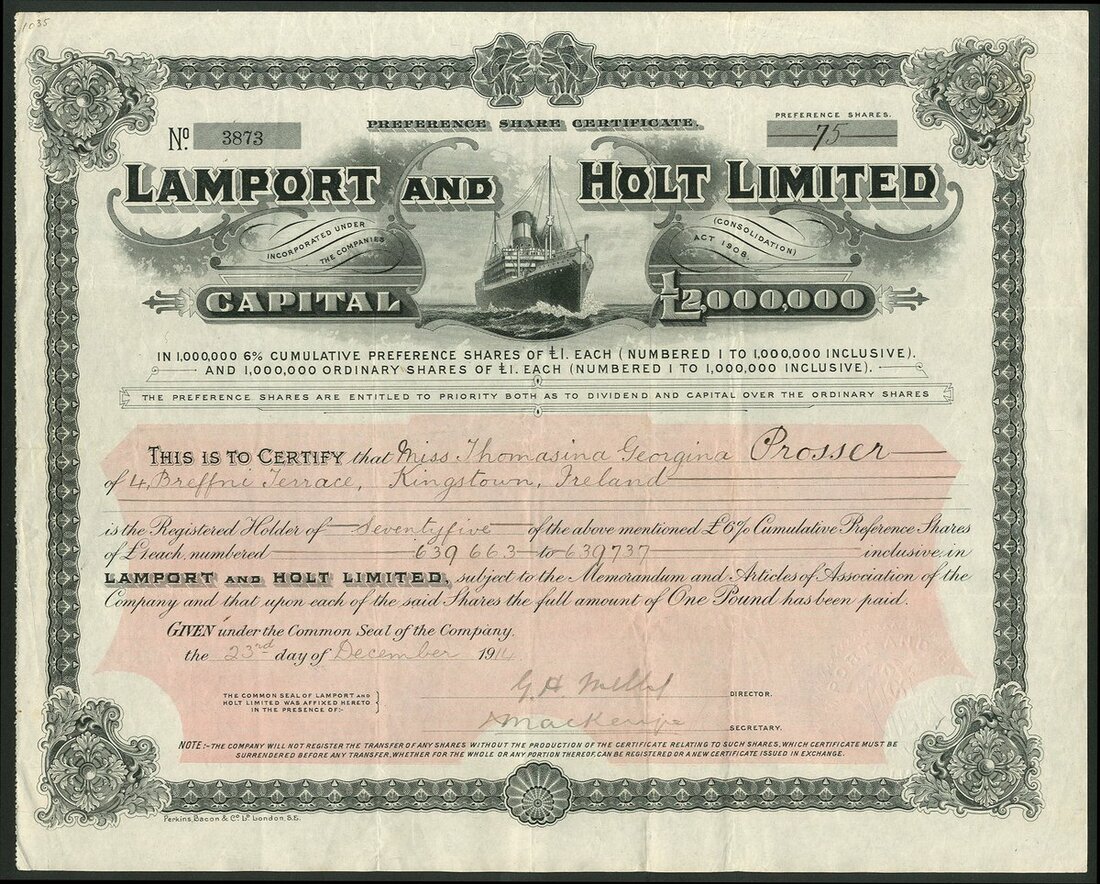 1035
PREFERENCE SHARE CERTIFICATE.
PREFERENCE SHARES.
No. 3873
75
LAMPORT AND HOLT LIMITED
INCORPORATED UNDER THE COMPANIES (CONSOLIDATION) ACT 1908.
CAPITAL £2,000,000
IN 1,000,000 6% CUMULATIVE PREFERENCE SHARES OF £1. EACH (NUMBERED 1 TO 1,000,000 INCLUSIVE).
AND 1,000,000 ORDINARY SHARES OF £1. EACH (NUMBERED 1 TO 1,000,000 INCLUSIVE).
THE PREFERENCE SHARES ARE ENTITLED TO PRIORITY BOTH AS TO DIVIDEND AND CAPITAL OVER THE ORDINARY SHARES
THIS IS TO CERTIFY that Miss Thomasina Georgina Prosser
of 4, Breffni Terrace, Kingstown, Ireland
is the Registered Holder of Seventyfive of the above mentioned £6% Cumulative Preference Shares
of £1 each, numbered 639 663 to 639737 inclusive, in
LAMPORT AND HOLT LIMITED, subject to the Memorandum and Articles of Association of the
Company and that upon each of the said Shares the full amount of One Pound has been paid.
GIVEN under the Common Seal of the Company,
the 23rd day of December 1914
THE COMMON SEAL OF LAMPORT AND
HOLT LIMITED WAS AFFIXED HERETO
IN THE PRESENCE OF:-
DIRECTOR.
SECRETARY.
NOTE:- THE COMPANY WILL NOT REGISTER THE TRANSFER OF ANY SHARES WITHOUT THE PRODUCTION OF THE CERTIFICATE RELATING TO SUCH SHARES, WHICH CERTIFICATE MUST BE
SURRENDERED BEFORE ANY TRANSFER, WHETHER FOR THE WHOLE OR ANY PORTION THEREOF, CAN BE REGISTERED OR A NEW CERTIFICATE ISSUED IN EXCHANGE.
Perkins, Bacon & Co. Ld. London, S.E.